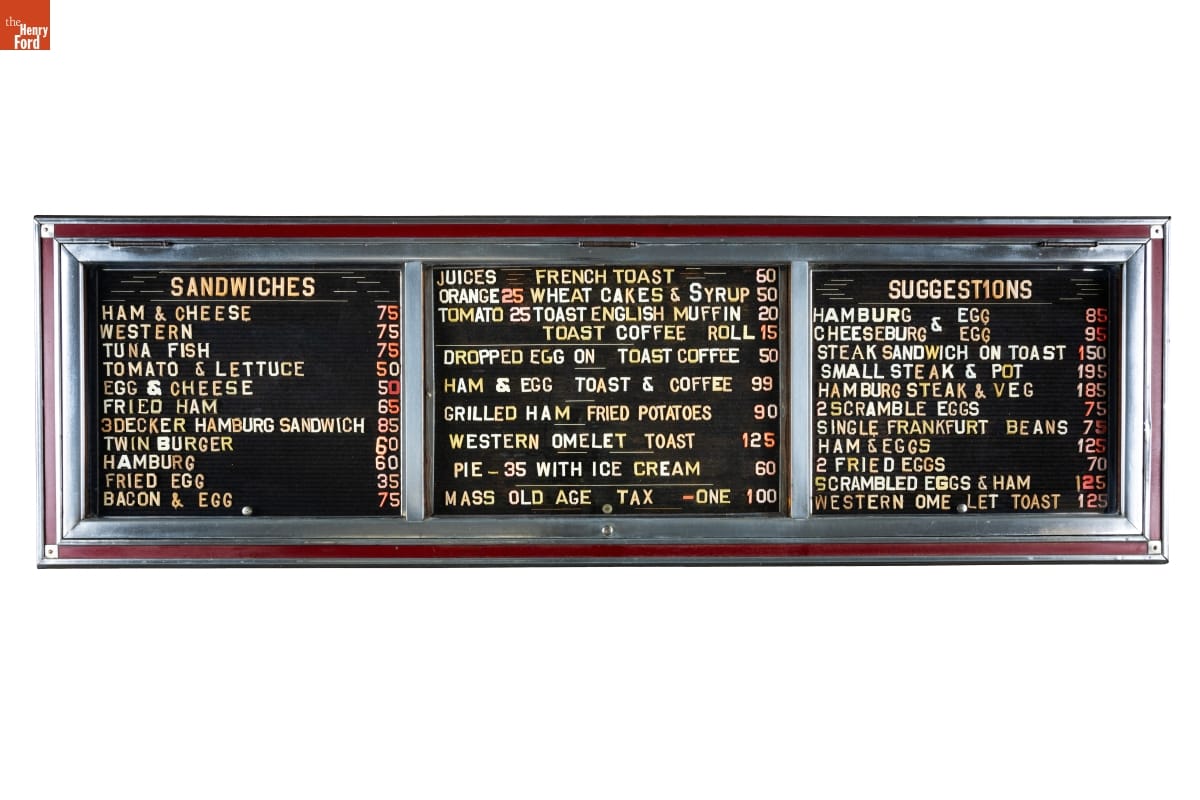 the
Henry
Ford
SANDWICHES
HAM & CHEESE 75
WESTERN 75
TUNA FISH 75
TOMATO & LETTUCE 50
EGG & CHEESE 50
FRIED HAM 65
3DECKER HAMBURG SANDWICH 85
TWIN BURGER 60
HAMBURG 60
FRIED EGG 35
BACON & EGG 75
JUICES FRENCH TOAST 60
ORANGE 25 WHEAT CAKES & SYRUP 50
TOMATO 25 TOAST ENGLISH MUFFIN 20
TOAST COFFEE ROLL 15
DROPPED EGG ON TOAST COFFEE 50
HAM & EGG TOAST & COFFEE 99
GRILLED HAM FRIED POTATOES 90
WESTERN OMELET TOAST 125
PIE - 35 WITH ICE CREAM 60
MASS OLD AGE TAX -ONE 100
SUGGEST1ONS
HAMBURG & EGG 85
CHEESEBURG EGG 95
STEAK SANDWICH ON TOAST 150
SMALL STEAK & POT 195
HAMBURG STEAK & VEG 185
2 SCRAMBLE EGGS 75
SINGLE FRANKFURT BEANS 75
HAM & EGGS 125
2 FRIED EGGS 70
SCRAMBLED EGGS & HAM 125
WESTERN OME LET TOAST 125